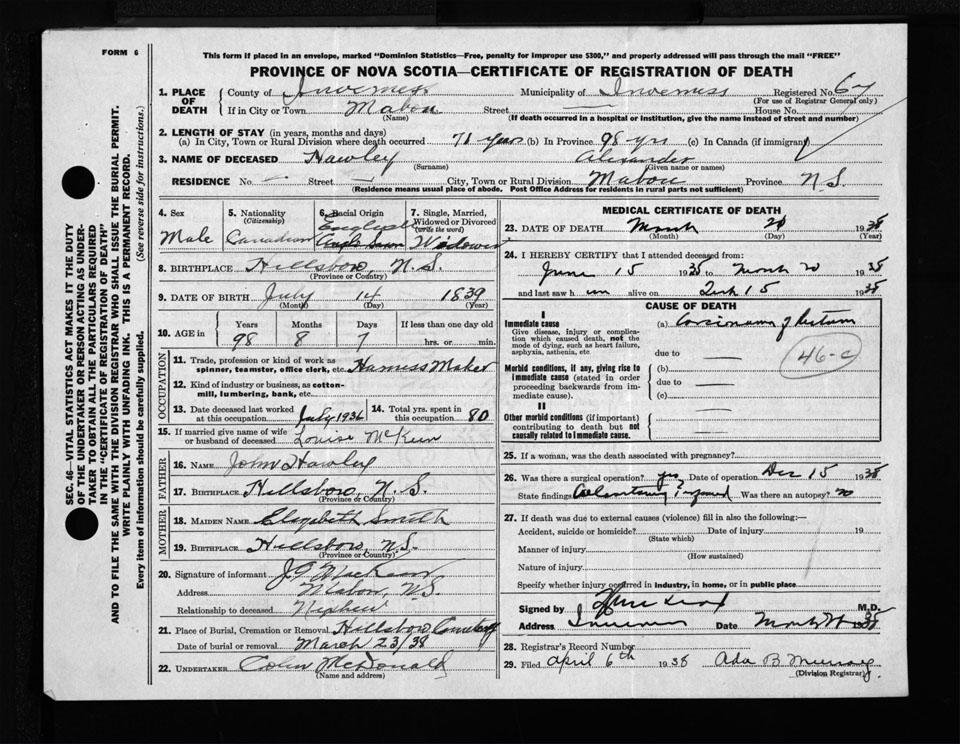 FORM 6
This form if placed in an envelope, marked "Dominion Statistics—Free, penalty for improper use $300," and properly addressed will pass through the mail "FREE"
PROVINCE OF NOVA SCOTIA—CERTIFICATE OF REGISTRATION OF DEATH
SEC. 46—VITAL STATISTICS ACT MAKES IT THE DUTY
OF THE UNDERTAKER OR PERSON ACTING AS UNDER-
TAKER TO OBTAIN ALL THE PARTICULARS REQUIRED
IN THE "CERTIFICATE OF REGISTRATION OF DEATH"
AND TO FILE THE SAME WITH THE DIVISION REGISTRAR WHO SHALL ISSUE THE BURIAL PERMIT.
WRITE PLAINLY WITH UNFADING INK. THIS IS A PERMANENT RECORD.
Every item of information should be carefully supplied. (See reverse side for instructions.)
1. PLACE OF DEATH County of Inverness Municipality of Inverness Registered No. 67
(For use of Registrar General only)
If in City or Town Mabou Street House No.
(Name) (If death occurred in a hospital or institution, give the name instead of street and number)
2. LENGTH OF STAY (in years, months and days)
(a) In City, Town or Rural Division where death occurred 71 yrs (b) In Province 98 yrs (c) In Canada (if immigrant)
3. NAME OF DECEASED Hawley Alexander
(Surname) (Given name or names)
RESIDENCE No. — Street — City, Town or Rural Division Mabou Province N.S.
(Residence means usual place of abode. Post Office Address for residents in rural parts not sufficient)
4. Sex Male
5. Nationality (Citizenship) Canadian
6. Racial Origin English
7. Single, Married, Widowed or Divorced (write the word) Widower
8. BIRTHPLACE Hillsboro, N.S.
(Province or Country)
9. DATE OF BIRTH July 14 1839
(Month) (Day) (Year)
10. AGE in Years 98 Months 8 Days 7 If less than one day old hrs. or min.
OCCUPATION
11. Trade, profession or kind of work as spinner, teamster, office clerk, etc. Harness Maker
12. Kind of industry or business, as cotton-mill, lumbering, bank, etc.
13. Date deceased last worked at this occupation July 1936
14. Total yrs. spent in this occupation 80
15. If married give name of wife or husband of deceased Louise McKeen
FATHER
16. NAME John Hawley
17. BIRTHPLACE Hillsboro, N.S.
(Province or Country)
MOTHER
18. MAIDEN NAME Elizabeth Smith
19. BIRTHPLACE Hillsboro, N.S.
(Province or Country)
20. Signature of informant J.G. MacKeen
Address Mabou, N.S.
Relationship to deceased Nephew
21. Place of Burial, Cremation or Removal Hillsboro Cemetery
Date of burial or removal March 23/38
22. UNDERTAKER Colin McDonald
(Name and address)
MEDICAL CERTIFICATE OF DEATH
23. DATE OF DEATH March 20 1938
(Month) (Day) (Year)
24. I HEREBY CERTIFY that I attended deceased from:
June 15 1935 to March 20 1938
and last saw h im alive on 15 1938
CAUSE OF DEATH
I
Immediate cause
Give disease, injury or complication which caused death, not the mode of dying, such as heart failure, asphyxia, asthenia, etc
(a) Carcinoma of Rectum
due to
46-c
Morbid conditions, if any, giving rise to immediate cause (stated in order proceeding backwards from immediate cause).
(b)
due to
(c)
II
Other morbid conditions (if important) contributing to death but not causally related to immediate cause.
25. If a woman, was the death associated with pregnancy?
26. Was there a surgical operation? yes Date of operation Dec 15 1935
State findings Colostomy Was there an autopsy? no
27. If death was due to external causes (violence) fill in also the following:—
Accident, suicide or homicide? Date of injury 19
(State which)
Manner of injury
(How sustained)
Nature of injury
Specify whether injury occurred in industry, in home, or in public place
Signed by M.D.
Address Inverness Date March 20 1938
28. Registrar's Record Number
29. Filed april 6th 1938 Ada B Murray
(Division Registrar)